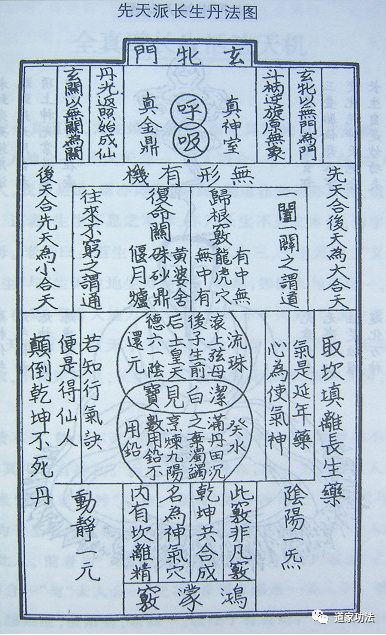 先天派长生丹法图
玄牝門
玄牝以無門為門
斗柄逆旋原無象
真神室
呼吸
真金鼎
丹光返照始成仙
玄關以無關為關
無形有機
先天合後天為大合天
一闔一闢之謂道
有中無
無中有
歸根竅龍虎穴
復命關硃砂鼎
黃婆舍
偃月爐
往來不窮之謂通
後天合先天為小合天
取坎填離長生藥
氣是延年藥
心為使氣神
流珠
滾上弦母
後子生前
后土皇天
德六一陰
還元
潔白見寶
癸水
滿丹田沉
之棄濁蠲
烹煉九陽
數用鉛不
用鉛
若知行氣訣
便是得仙人
顛倒乾坤不死丹
陰陽一炁
此竅非凡竅
乾坤共合成
名為神氣穴
內有坎離精
動靜一元
鴻濛竅
道家功法